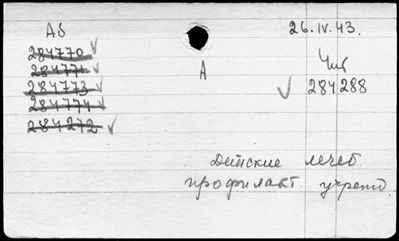 АБ
284770
284771
284773
284774
284272
А
26.IV.43.
Чив
284288
Детские лечеб
профилакт учрежд